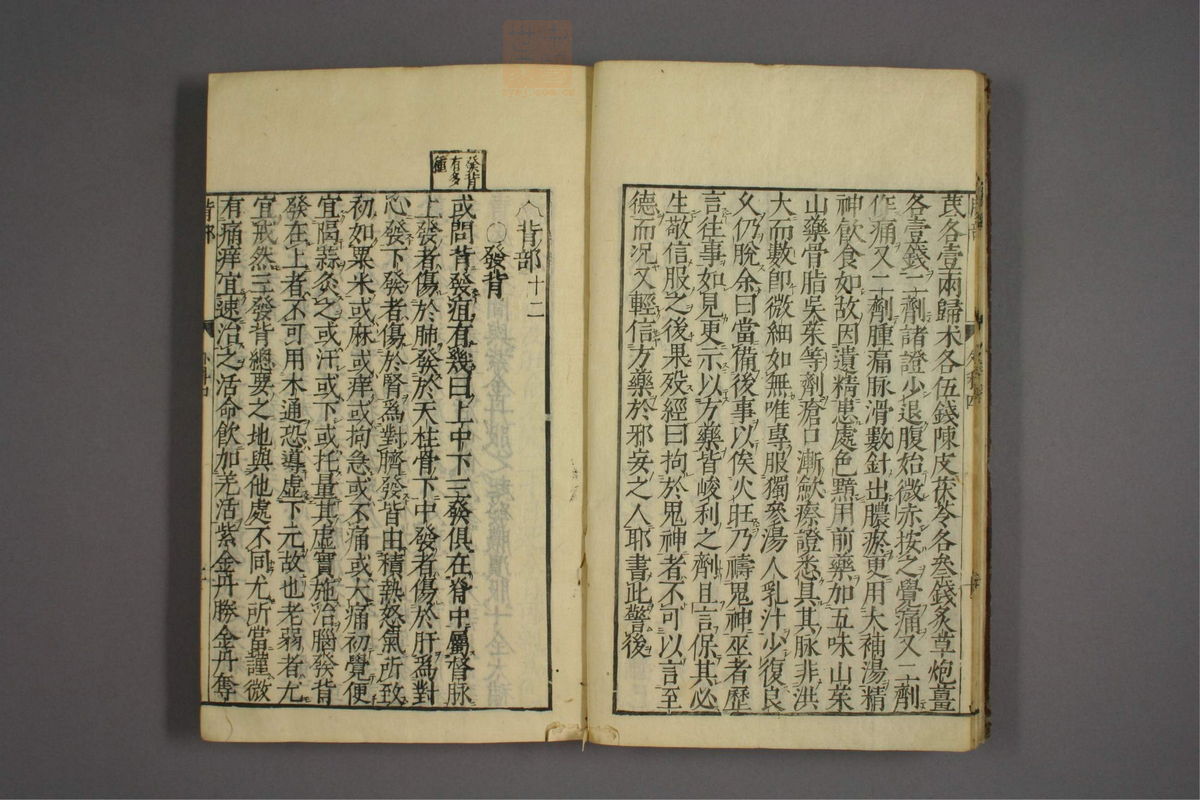 芪各壹兩歸朮各伍錢陳皮茯苓各叁錢炙草炮薑
各壹錢一劑諸證少退腹始微赤按之覺痛又二劑
作痛又二劑腫痛脉滑數針出膿瘀更用大補湯精
神飲食如故因遺精患處色黯用前藥加五味山茱
山藥骨脂吳茱等劑瘡口漸歛瘵證悉具其脉非洪
大而數即微細如無唯專服獨參湯人乳汁少復良
久仍脫余曰當備後事以俟火旺乃禱鬼神巫者歷
言往事如見更示以方藥皆峻利之劑且言保其必
生敬信服之後果歿經曰拘於鬼神者不可以言至
德而况又輕信方藥於邪妄之人耶書此警後
發背有多種
背部十二
○發背
或問背發疽有幾曰上中下三發俱在脊中屬督脉
上發者傷於肺發於天柱骨下中發者傷於肝爲對
心發下發者傷於腎爲對臍發皆由積熱怒氣所致
初如粟米或麻或痒或拘急或不痛或大痛初覺便
宜隔蒜灸之或汗或下或托量其虛實施治腦發背
發在上者不可用木通恐導虛下元故也老弱者尤
宜戒然三發背總要之地與他處不同尤所當謹微
有痛痒宜速治之活命飲加羌活紫金丹勝金丹奪
背部